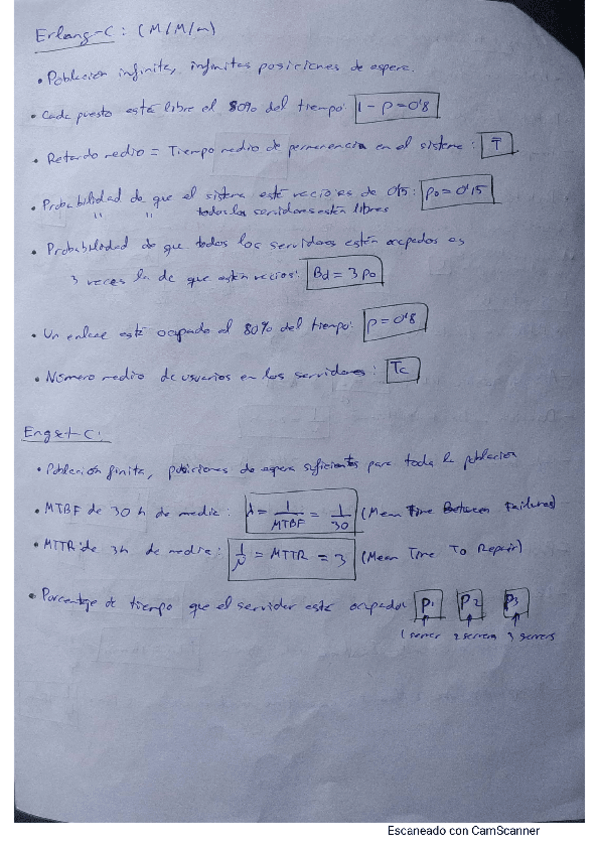 Erlang-C: (M/M/n)
• Población infinita, infinitas posiciones de espera.
• Cada puesto está libre el 80% del tiempo: 1 - ρ = 0'8
• Retardo medio = Tiempo medio de permanencia en el sistema: T̄
• Probabilidad de que el sistema esté vacío es de 0'15: p₀ = 0'15
" " todos los servidores estén libres
• Probabilidad de que todos los servidores estén ocupados es
3 veces la de que estén vacíos: Bd = 3 p₀
• Un enlace está ocupado el 80% del tiempo: ρ = 0'8
• Número medio de usuarios en los servidores: Tc
Engset-C:
• Población finita, posiciones de espera suficientes para toda la población
• MTBF de 30 h de media: λ = 1/MTBF = 1/30 (Mean Time Between Failures)
• MTTR de 3h de media: 1/μ = MTTR = 3 (Mean Time To Repair)
• Porcentaje de tiempo que el servidor está ocupado: P₁ P₂ P₃
1 server 2 servers 3 servers
Escaneado con CamScanner